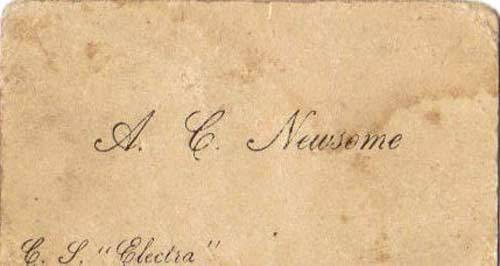 A. C. Newsome
C. S. "Electra"